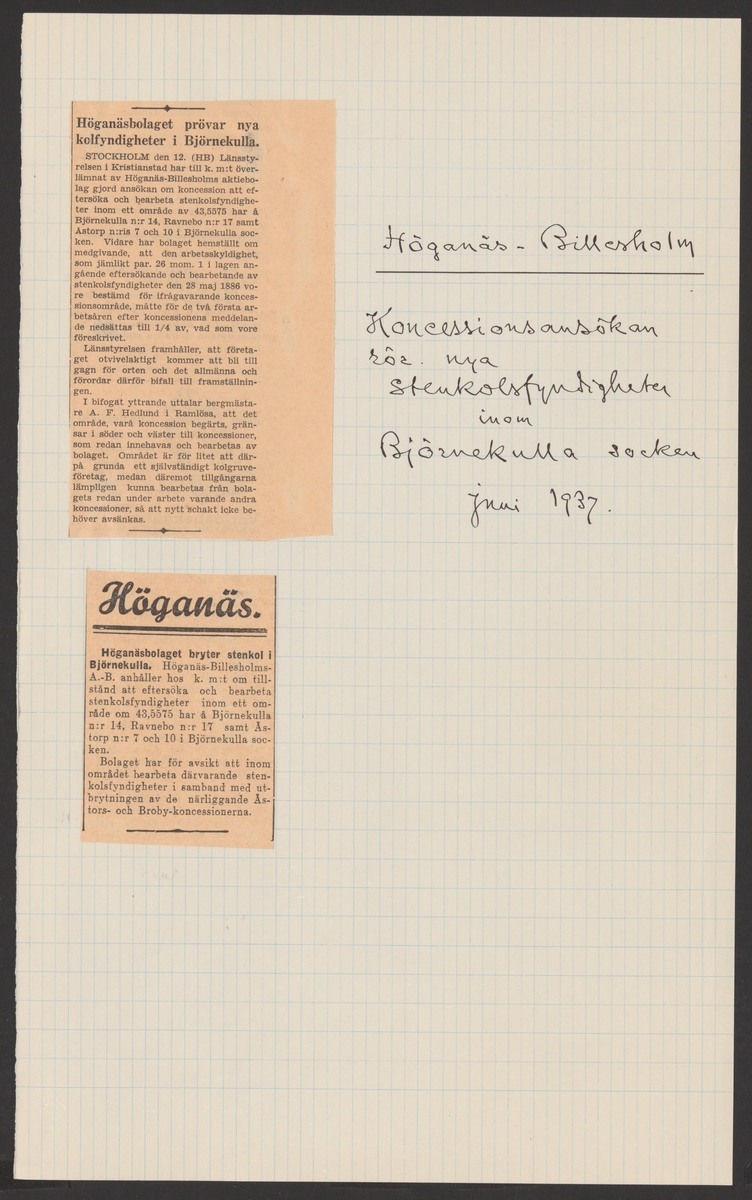 Höganäsbolaget prövar nya
kolfyndigheter i Björnekulla.
STOCKHOLM den 12. (HB) Länssty-
relsen i Kristianstad har till k. m:t över-
lämnat av Höganäs-Billesholms aktiebo-
lag gjord ansökan om koncession att ef-
tersöka och bearbeta stenkolsfyndighe-
ter inom ett område av 43,5575 har å
Björnekulla n:r 14, Ravnebo n:r 17 samt
Åstorp n:ris 7 och 10 i Björnekulla soc-
ken. Vidare har bolaget hemställt om
medgivande, att den arbetsskyldighet,
som jämlikt par. 26 mom. 1 i lagen an-
gående eftersökande och bearbetande av
stenkolsfyndigheter den 28 maj 1886 vo-
re bestämd för ifrågavarande konces-
sionsområde, måtte för de två första ar-
betsåren efter koncessionens meddelan-
de nedsättas till 1/4 av, vad som vore
föreskrivet.
Länsstyrelsen framhåller, att företa-
get otvivelaktigt kommer att bli till
gagn för orten och det allmänna och
förordar därför bifall till framställnin-
gen.
I bifogat yttrande uttalar bergmästa-
re A. F. Hedlund i Ramlösa, att det
område, varå koncession begärts, grän-
sar i söder och väster till koncessioner,
som redan innehavas och bearbetas av
bolaget. Området är för litet att där-
på grunda ett självständigt kolgruve-
företag, medan däremot tillgångarna
lämpligen kunna bearbetas från bola-
gets redan under arbete varande andra
koncessioner, så att nytt schakt icke be-
höver avsänkas.
Höganäs - Billesholm
Koncessionsansökan
rör. nya
stenkolsfyndigheter
inom
Björnekulla socken
juni 1937.
Höganäs.
Höganäsbolaget bryter stenkol i
Björnekulla. Höganäs-Billesholms-
A.-B. anhåller hos k. m:t om till-
stånd att eftersöka och bearbeta
stenkolsfyndigheter inom ett om-
råde om 43,5575 har å Björnekulla
n:r 14, Ravnebo n:r 17 samt Ås-
torp n:r 7 och 10 i Björnekulla soc-
ken.
Bolaget har för avsikt att inom
området bearbeta därvarande sten-
kolsfyndigheter i samband med ut-
brytningen av de närliggande Ås-
tors- och Broby-koncessionerna.